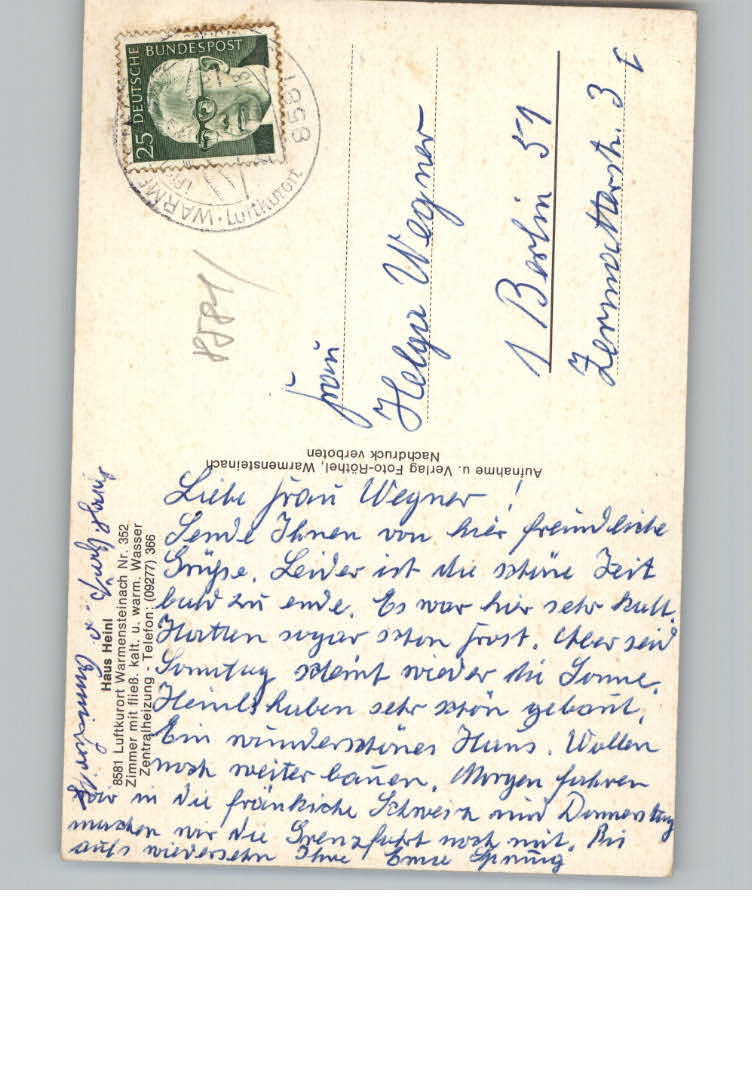 DEUTSCHE BUNDESPOST
25
8581
8581
WARME
Luftkurort
Frau
Helga Wegner
1 Berlin 51
Zermatterstr. 3
Aufnahme u. Verlag Foto-Röthel, Warmensteinach
Nachdruck verboten
Haus Heinl
8581 Luftkurort Warmensteinach Nr. 352
Zimmer mit fließ. kalt. u. warm. Wasser
Zentralheizung - Telefon: (09277) 366
Liebe Frau Wegner!
Sende Ihnen von hier freundliche
Grüße. Leider ist die schöne Zeit
bald zu ende. Es war hier sehr kalt.
Hatten sogar schon Frost. Aber seid
Sonntag scheint wieder die Sonne.
Heinls haben sehr schön gebaut.
Ein wunderschönes Haus. Wollen
noch weiter bauen. Morgen fahren
wir in die fränkische Schweiz und Donnerstag
machen wir die Grenzfahrt noch mit. Bis
aufs wiedersehn Ihre Erna